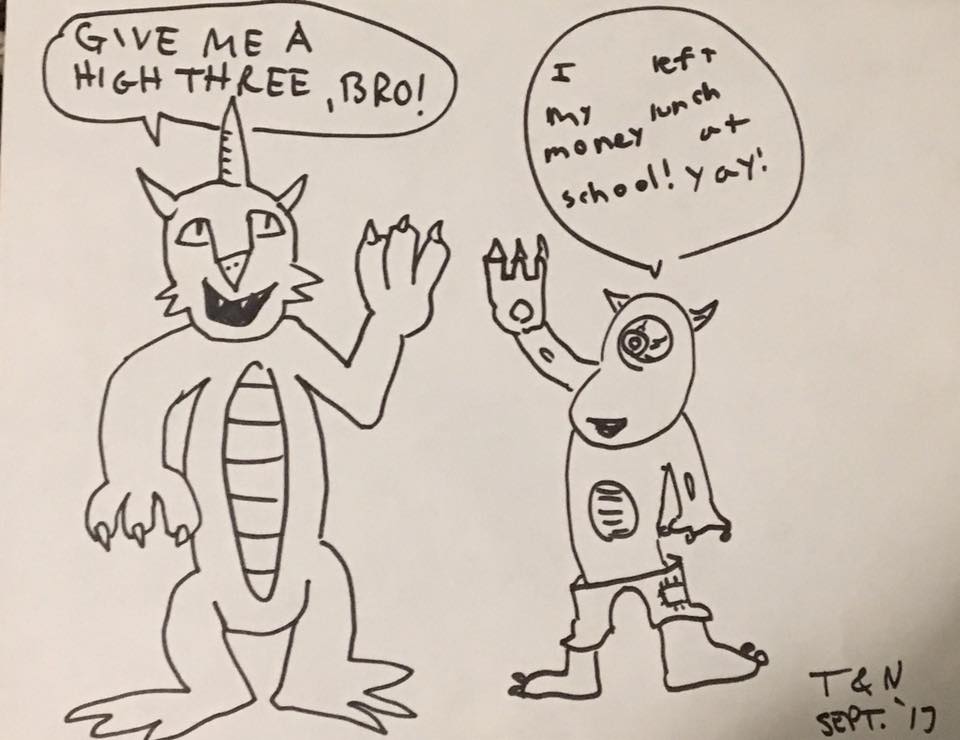 GIVE ME A
HIGH THREE, BRO!
I left
my lunch
money at
school! yay!
T & N
SEPT. '17